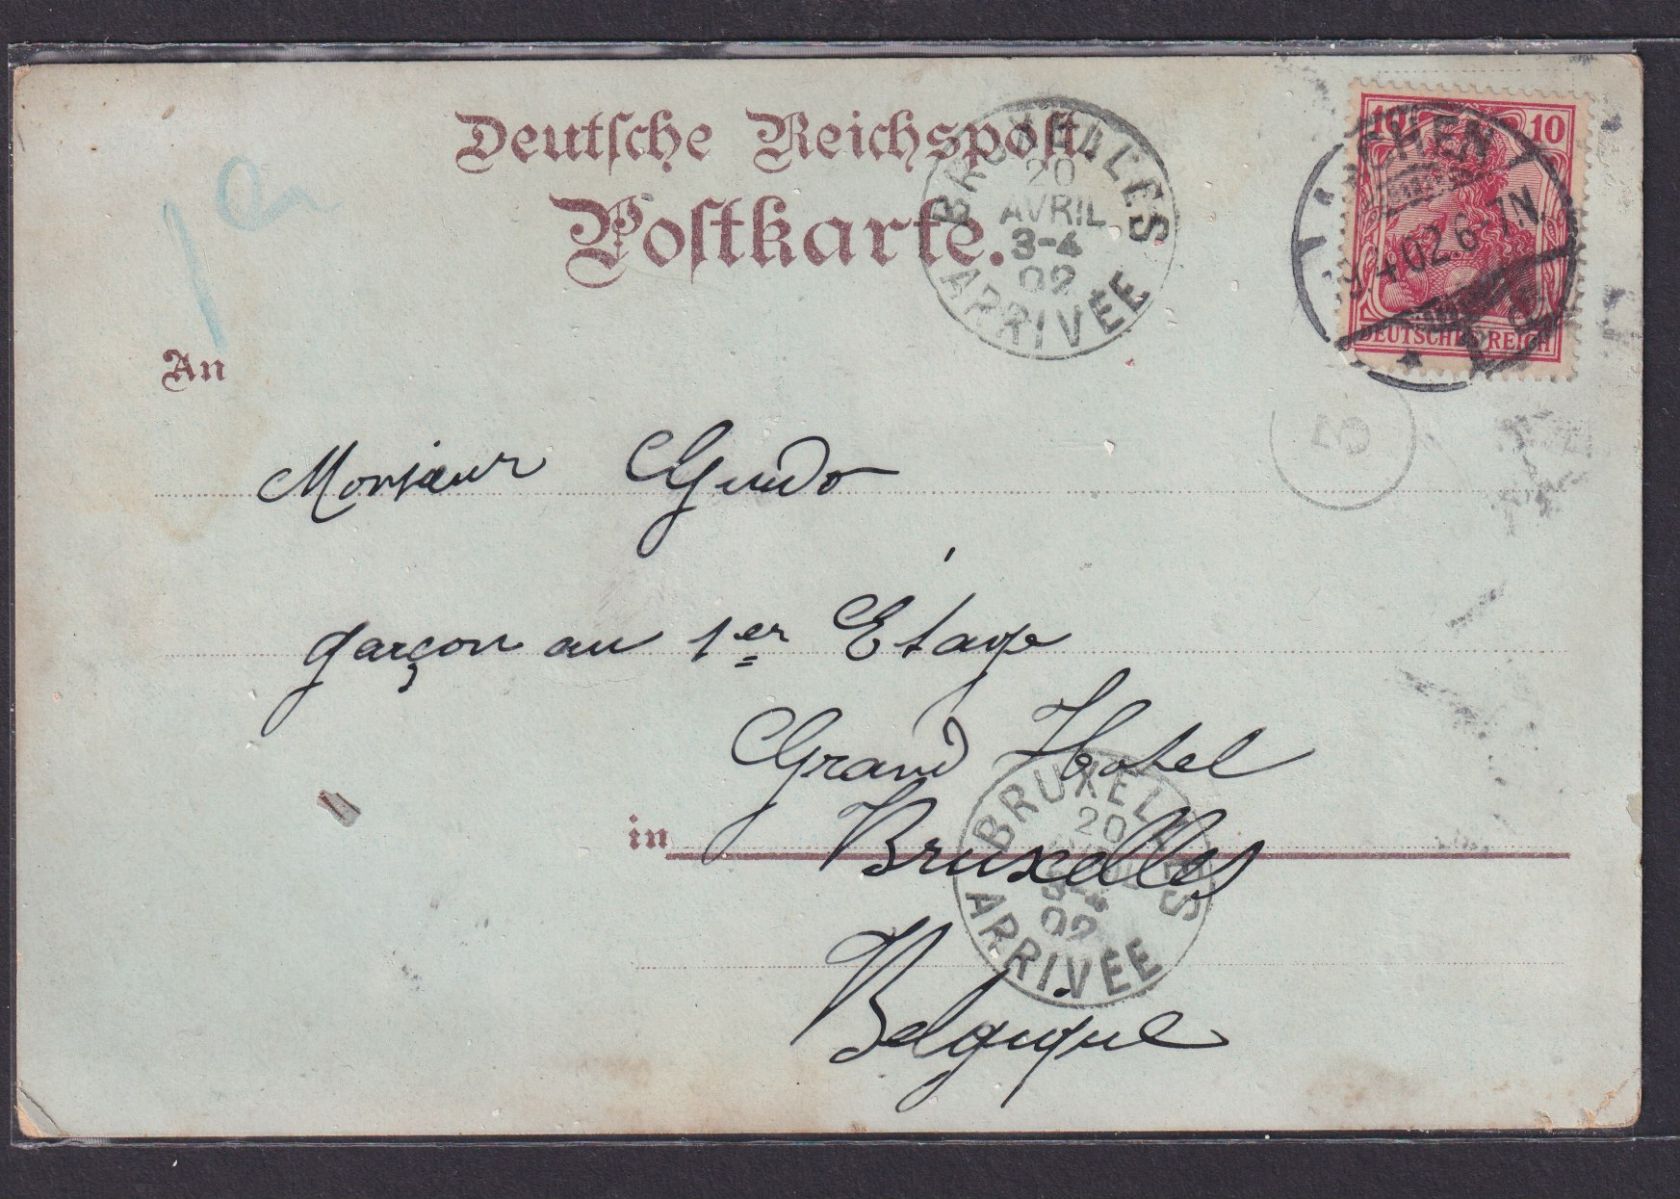 Deutsche Reichspost.
Postkarte.
BRUXELLES
20
AVRIL
3-4
02
ARRIVÉE
10 10
DEUTSCHES REICH
AACHEN 1
4 02. 6-7N.
5
An
Monsieur Guido
garçon au 1er Étage
Grand Hotel
in Bruxelles
BRUXELLES
20
AVRIL
3-4
02
ARRIVÉE
Belgique